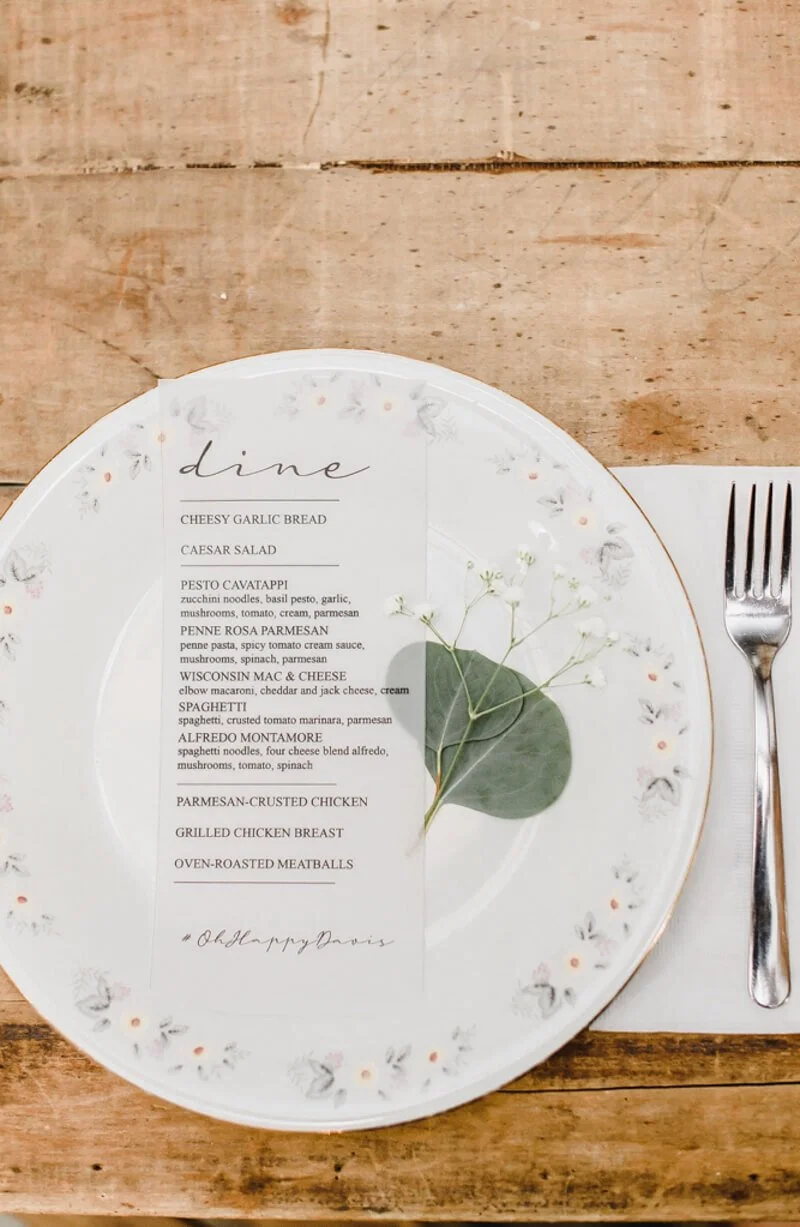 dine
CHEESY GARLIC BREAD
CAESAR SALAD
PESTO CAVATAPPI
zucchini noodles, basil pesto, garlic,
mushrooms, tomato, cream, parmesan
PENNE ROSA PARMESAN
penne pasta, spicy tomato cream sauce,
mushrooms, spinach, parmesan
WISCONSIN MAC & CHEESE
elbow macaroni, cheddar and jack cheese, cream
SPAGHETTI
spaghetti, crusted tomato marinara, parmesan
ALFREDO MONTAMORE
spaghetti noodles, four cheese blend alfredo,
mushrooms, tomato, spinach
PARMESAN-CRUSTED CHICKEN
GRILLED CHICKEN BREAST
OVEN-ROASTED MEATBALLS
#OhHappyDavis